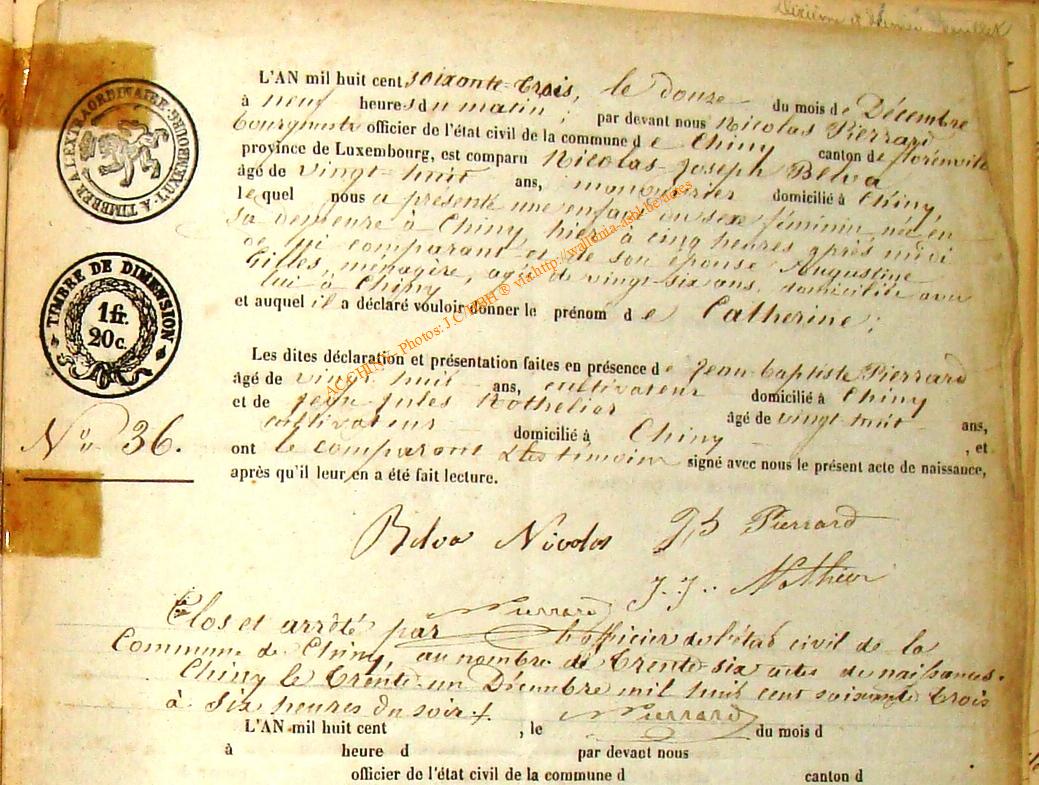 Dixième et dernier feuillet
TIMBRE A L'EXTRAORDINAIRE
LUXEMBOURG
TIMBRE DE DIMENSION
1 fr.
20 c.
N° 36.
L'AN mil huit cent soixante-trois, le douze du mois de Décembre
à neuf heures du matin ; par devant nous Nicolas Pierrard
bourgmestre officier de l'état civil de la commune de Chiny canton de florenville
province de Luxembourg, est comparu Nicolas-Joseph Belva
âgé de vingt-huit ans, domicilié à Chiny,
lequel nous a présenté une enfant du sexe féminin, née en
sa demeure à Chiny, hier à cinq heures après midi
de lui comparant et de son épouse Augustine
Gilles, ménagère, agée de vingt-six ans, domiciliée avec
lui à Chiny ;
et auquel il a déclaré vouloir donner le prénom de Catherine ;
ACCHIny®, Photos: J.C/MBH ® via http://wallonia-asbl.be/actes
Les dites déclaration et présentation faites en présence de Jean-Baptiste Pierrard
âgé de vingt huit ans, cultivateur domicilié à Chiny
et de Jean Jules âgé de vingt huit ans,
cultivateur domicilié à Chiny , et
ont le comparant & les témoins signé avec nous le présent acte de naissance,
après qu'il leur en a été fait lecture.
Belva Nicolas J, B Pierrard
J. J.
NPierrard
Clos et arrêté par l'officier de l'état civil de la
Commune de Chiny, au nombre de trente-six actes de naissances.
Chiny le trente-un Décembre mil huit cent soixante trois
à six heures du soir.
NPierrard
L'AN mil huit cent , le du mois d
à heure d par devant nous
officier de l'état civil de la commune d canton d